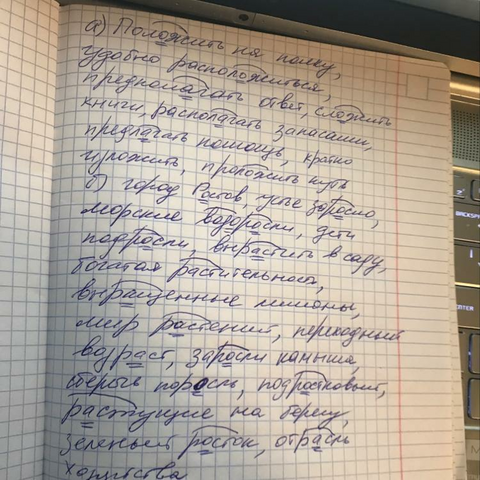 а) Положить на полку,
удобно расположиться,
предполагать ответ, сложить
книги, располагать запасами,
предлагать помощь, кратко
изложить, проложить путь
б) город Ростов, устье заросло,
морские водоросли, дети
подросли вырастить в саду,
богатая растительность,
выращенные лимоны,
мир растений, переходный
возраст, заросли камыша,
поросль, подростковый,
растущие на берегу,
зеленый росток, отрасль
хозяйства
BACKSPACE
ENTER